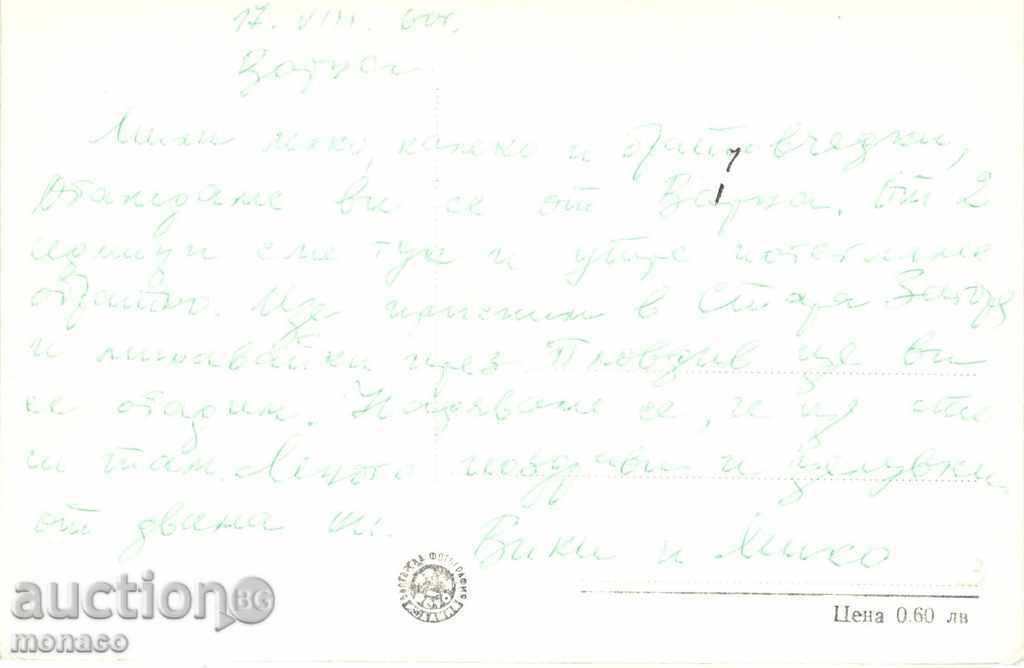 17. VIII. 60г.
Варна
Мили лелко, калеко и братовчедки,
Обаждаме ви се от Варна. От 2
седмици сме тук и утре потегляме
обратно. Ще пристигнем в Стара Загора
и минавайки през Пловдив ще ви
се обадим. Надяваме се, че ще сте
и там. Много поздрави и целувки
от двама ни.
Вики и Мико
БЪЛГАРСКА ФОТОГРАФИЯ
Цена 0.60 лв
auction BG
monaco